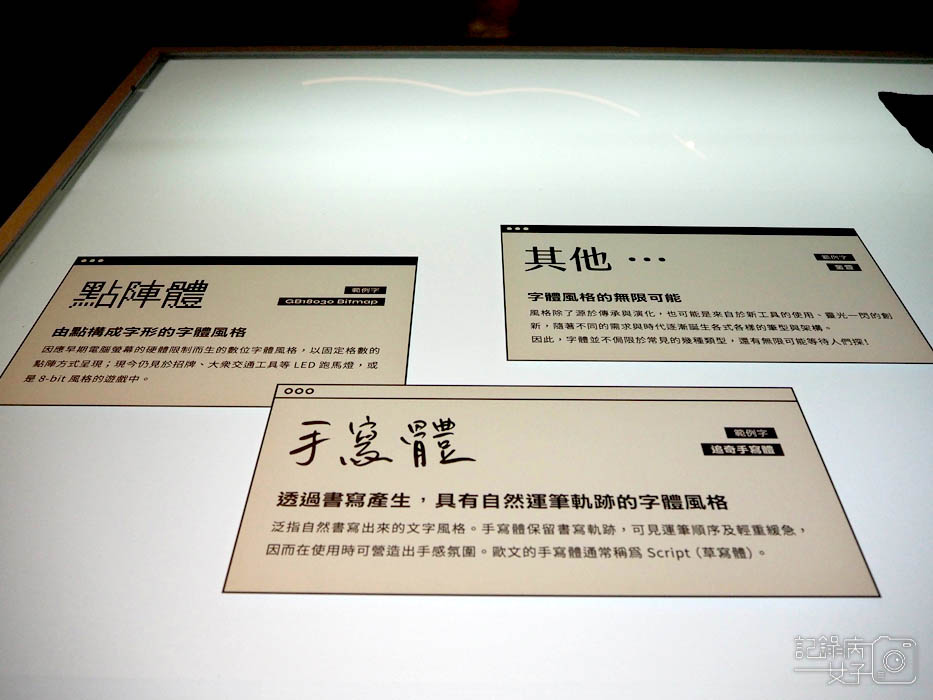 點陣體
範例字
GB18030 Bitmap
由點構成字形的字體風格
因應早期電腦螢幕的硬體限制而生的數位字體風格，以固定格數的
點陣方式呈現；現今仍見於招牌、大眾交通工具等 LED 跑馬燈，或
是 8-bit 風格的遊戲中。
其他 …
範例字
字體風格的無限可能
風格除了源於傳承與演化，也可能是來自於新工具的使用、靈光一閃的創
新，隨著不同的需求與時代逐漸誕生各式各樣的筆型與架構。
因此，字體並不侷限於常見的幾種類型，還有無限可能等待人們探！
手寫體
範例字
追奇手寫體
透過書寫產生，具有自然運筆軌跡的字體風格
泛指自然書寫出來的文字風格。手寫體保留書寫軌跡，可見運筆順序及輕重緩急，
因而在使用時可營造出手感氛圍。歐文的手寫體通常稱為 Script（草寫體）。
記錄病
女子